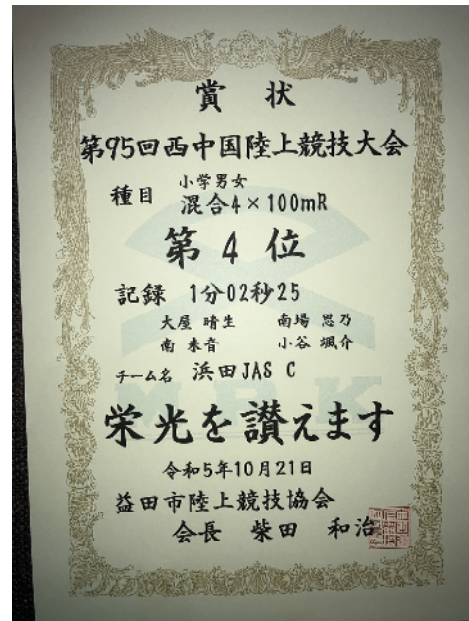 賞状
第95回西中国陸上競技大会
種目 小学男女
混合4×100mR
第4位
記録 1分02秒25
大屋 晴生 南場 思乃
南 未音 小谷 颯介
チーム名 浜田JAS C
栄光を讃えます
令和5年10月21日
益田市陸上競技協会
会長 柴田 和治